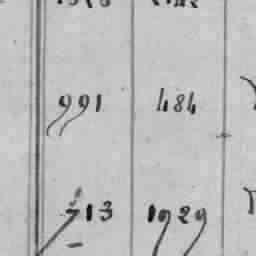 991 484
713 1929